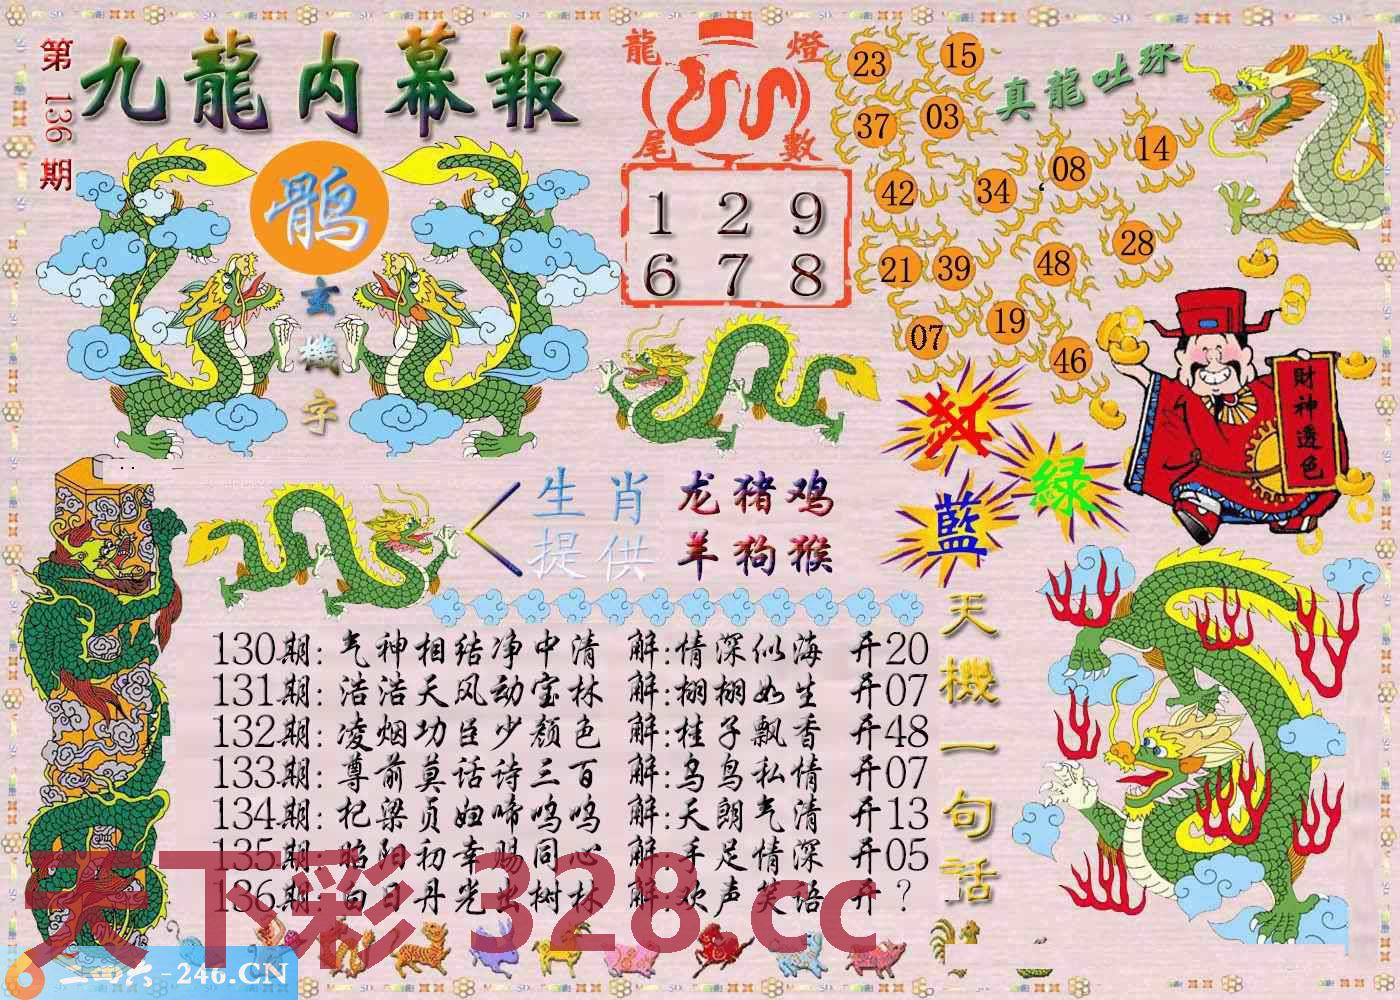 第136期
九龍内幕報
鹘
玄機字
龍燈
尾數
1 2 9
6 7 8
真龍吐珠
23 15
37 03
42 34 08 14
21 39 48 28
07 19 46
財神透色
红
绿
藍
生肖
提供
龙猪鸡
羊狗猴
天機一句話
130期:气神相结净中清 解:情深似海 开20
131期:浩浩天风动宝林 解:栩栩如生 开07
132期:凌烟功臣少颜色 解:桂子飘香 开48
133期:尊前莫话诗三百 解:乌鸟私情 开07
134期:杞梁贞妇啼呜呜 解:天朗气清 开13
135期:昭阳初幸赐同心 解:手足情深 开05
136期:白日丹光出树林 解:欢声笑语 开?
天下彩 328.cc
二四六-246.CN